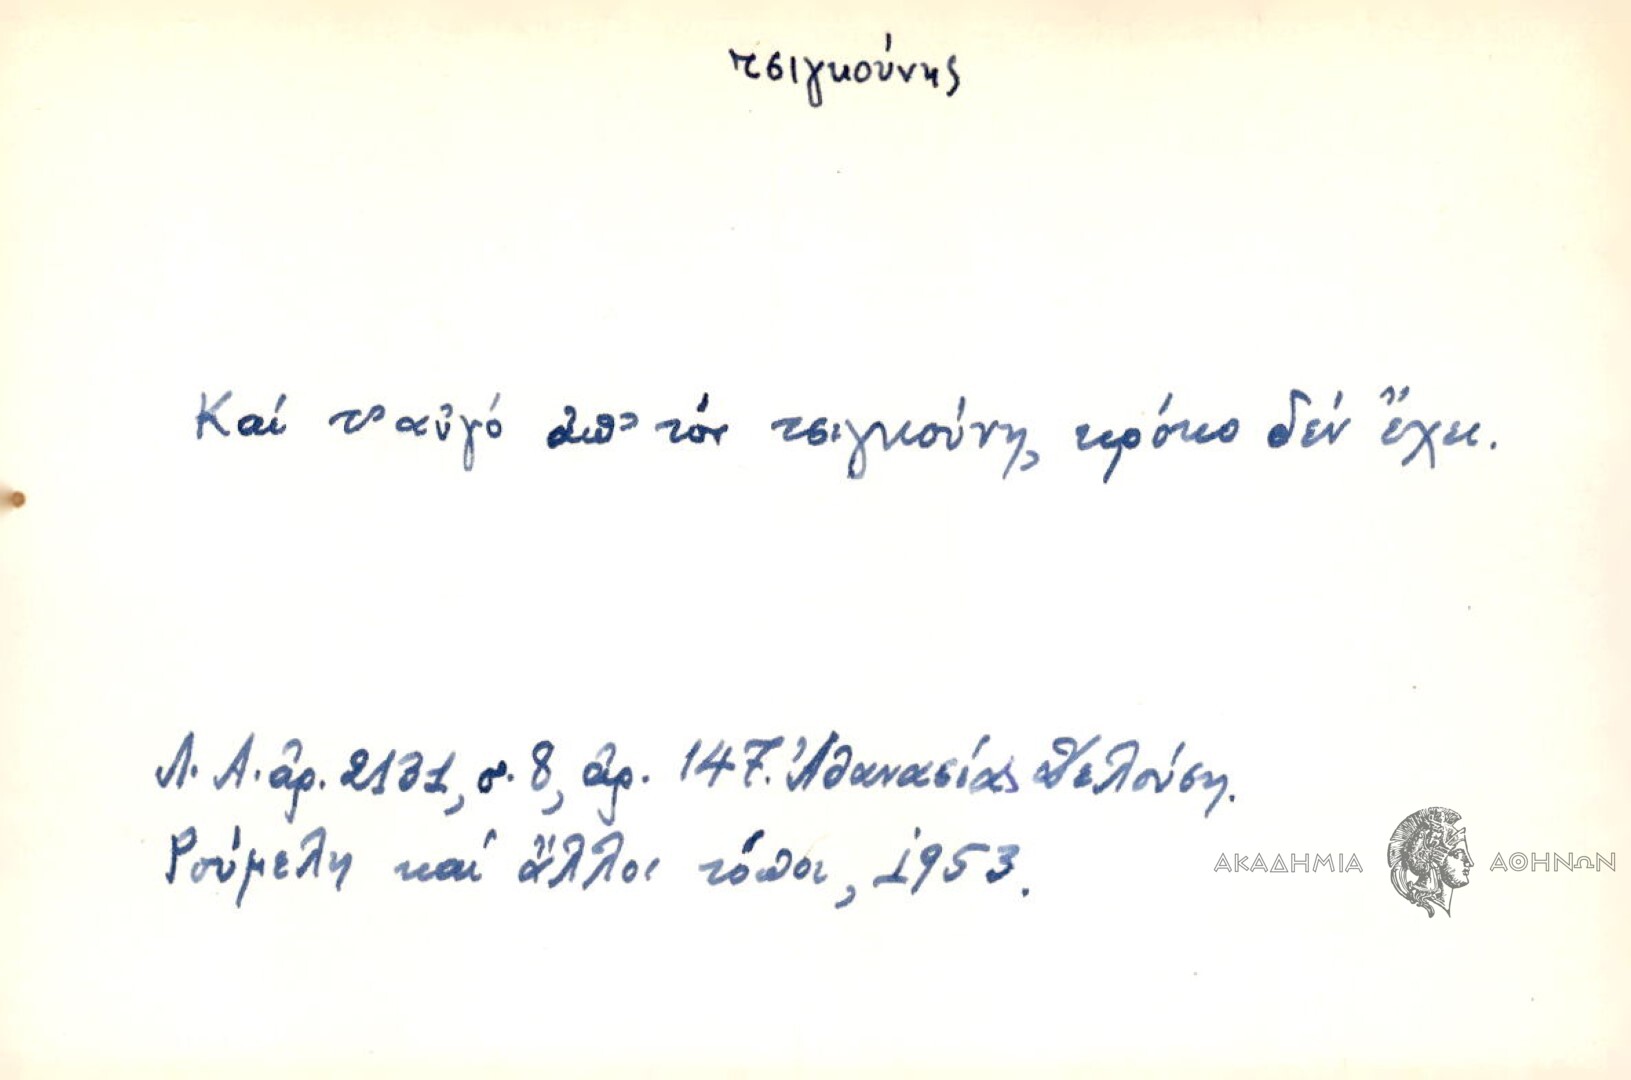 τσιγκούνης
Καί τ' αὐγό ἀπ' τόν τσιγκούνη, κρόκο δέν ἔχει.
Λ. Α. ἀρ. 2131, σ. 8, ἀρ. 147. Ἀθανασίας
Ρούμελη καί ἄλλοι τόποι, 1953.
ΑΚΑΔΗΜΙΑ ΑΘΗΝΩΝ